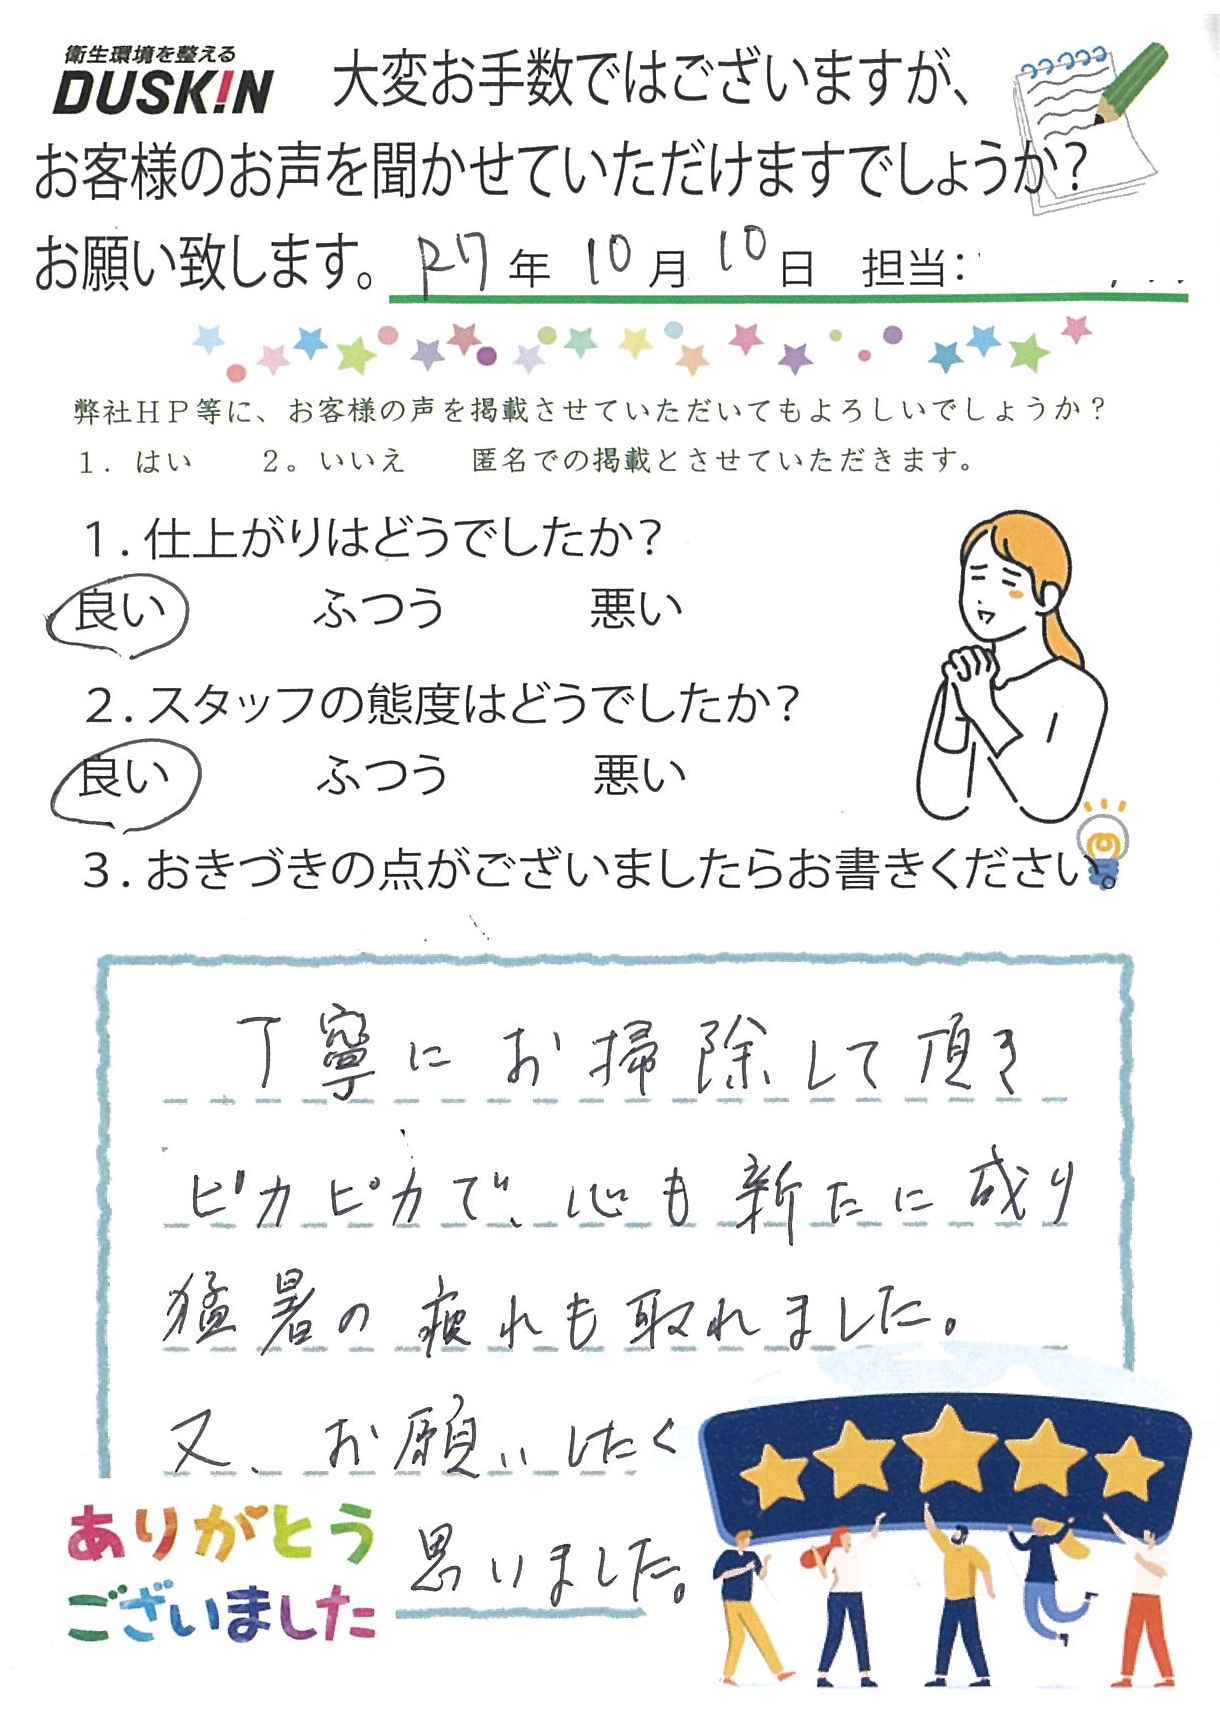 衛生環境を整える
DUSKIN 大変お手数ではございますが、
お客様のお声を聞かせていただけますでしょうか？
お願い致します。 R7年 10月 10日 担当：
弊社ＨＰ等に、お客様の声を掲載させていただいてもよろしいでしょうか？
１．はい ２。いいえ 匿名での掲載とさせていただきます。
１．仕上がりはどうでしたか？
良い ふつう 悪い
２．スタッフの態度はどうでしたか？
良い ふつう 悪い
３．おきづきの点がございましたらお書きください。
丁寧にお掃除して頂き
ピカピカで、心も新たに成り
猛暑の疲れも取れました。
又、お願いしたく
思いました。
ありがとう
ございました